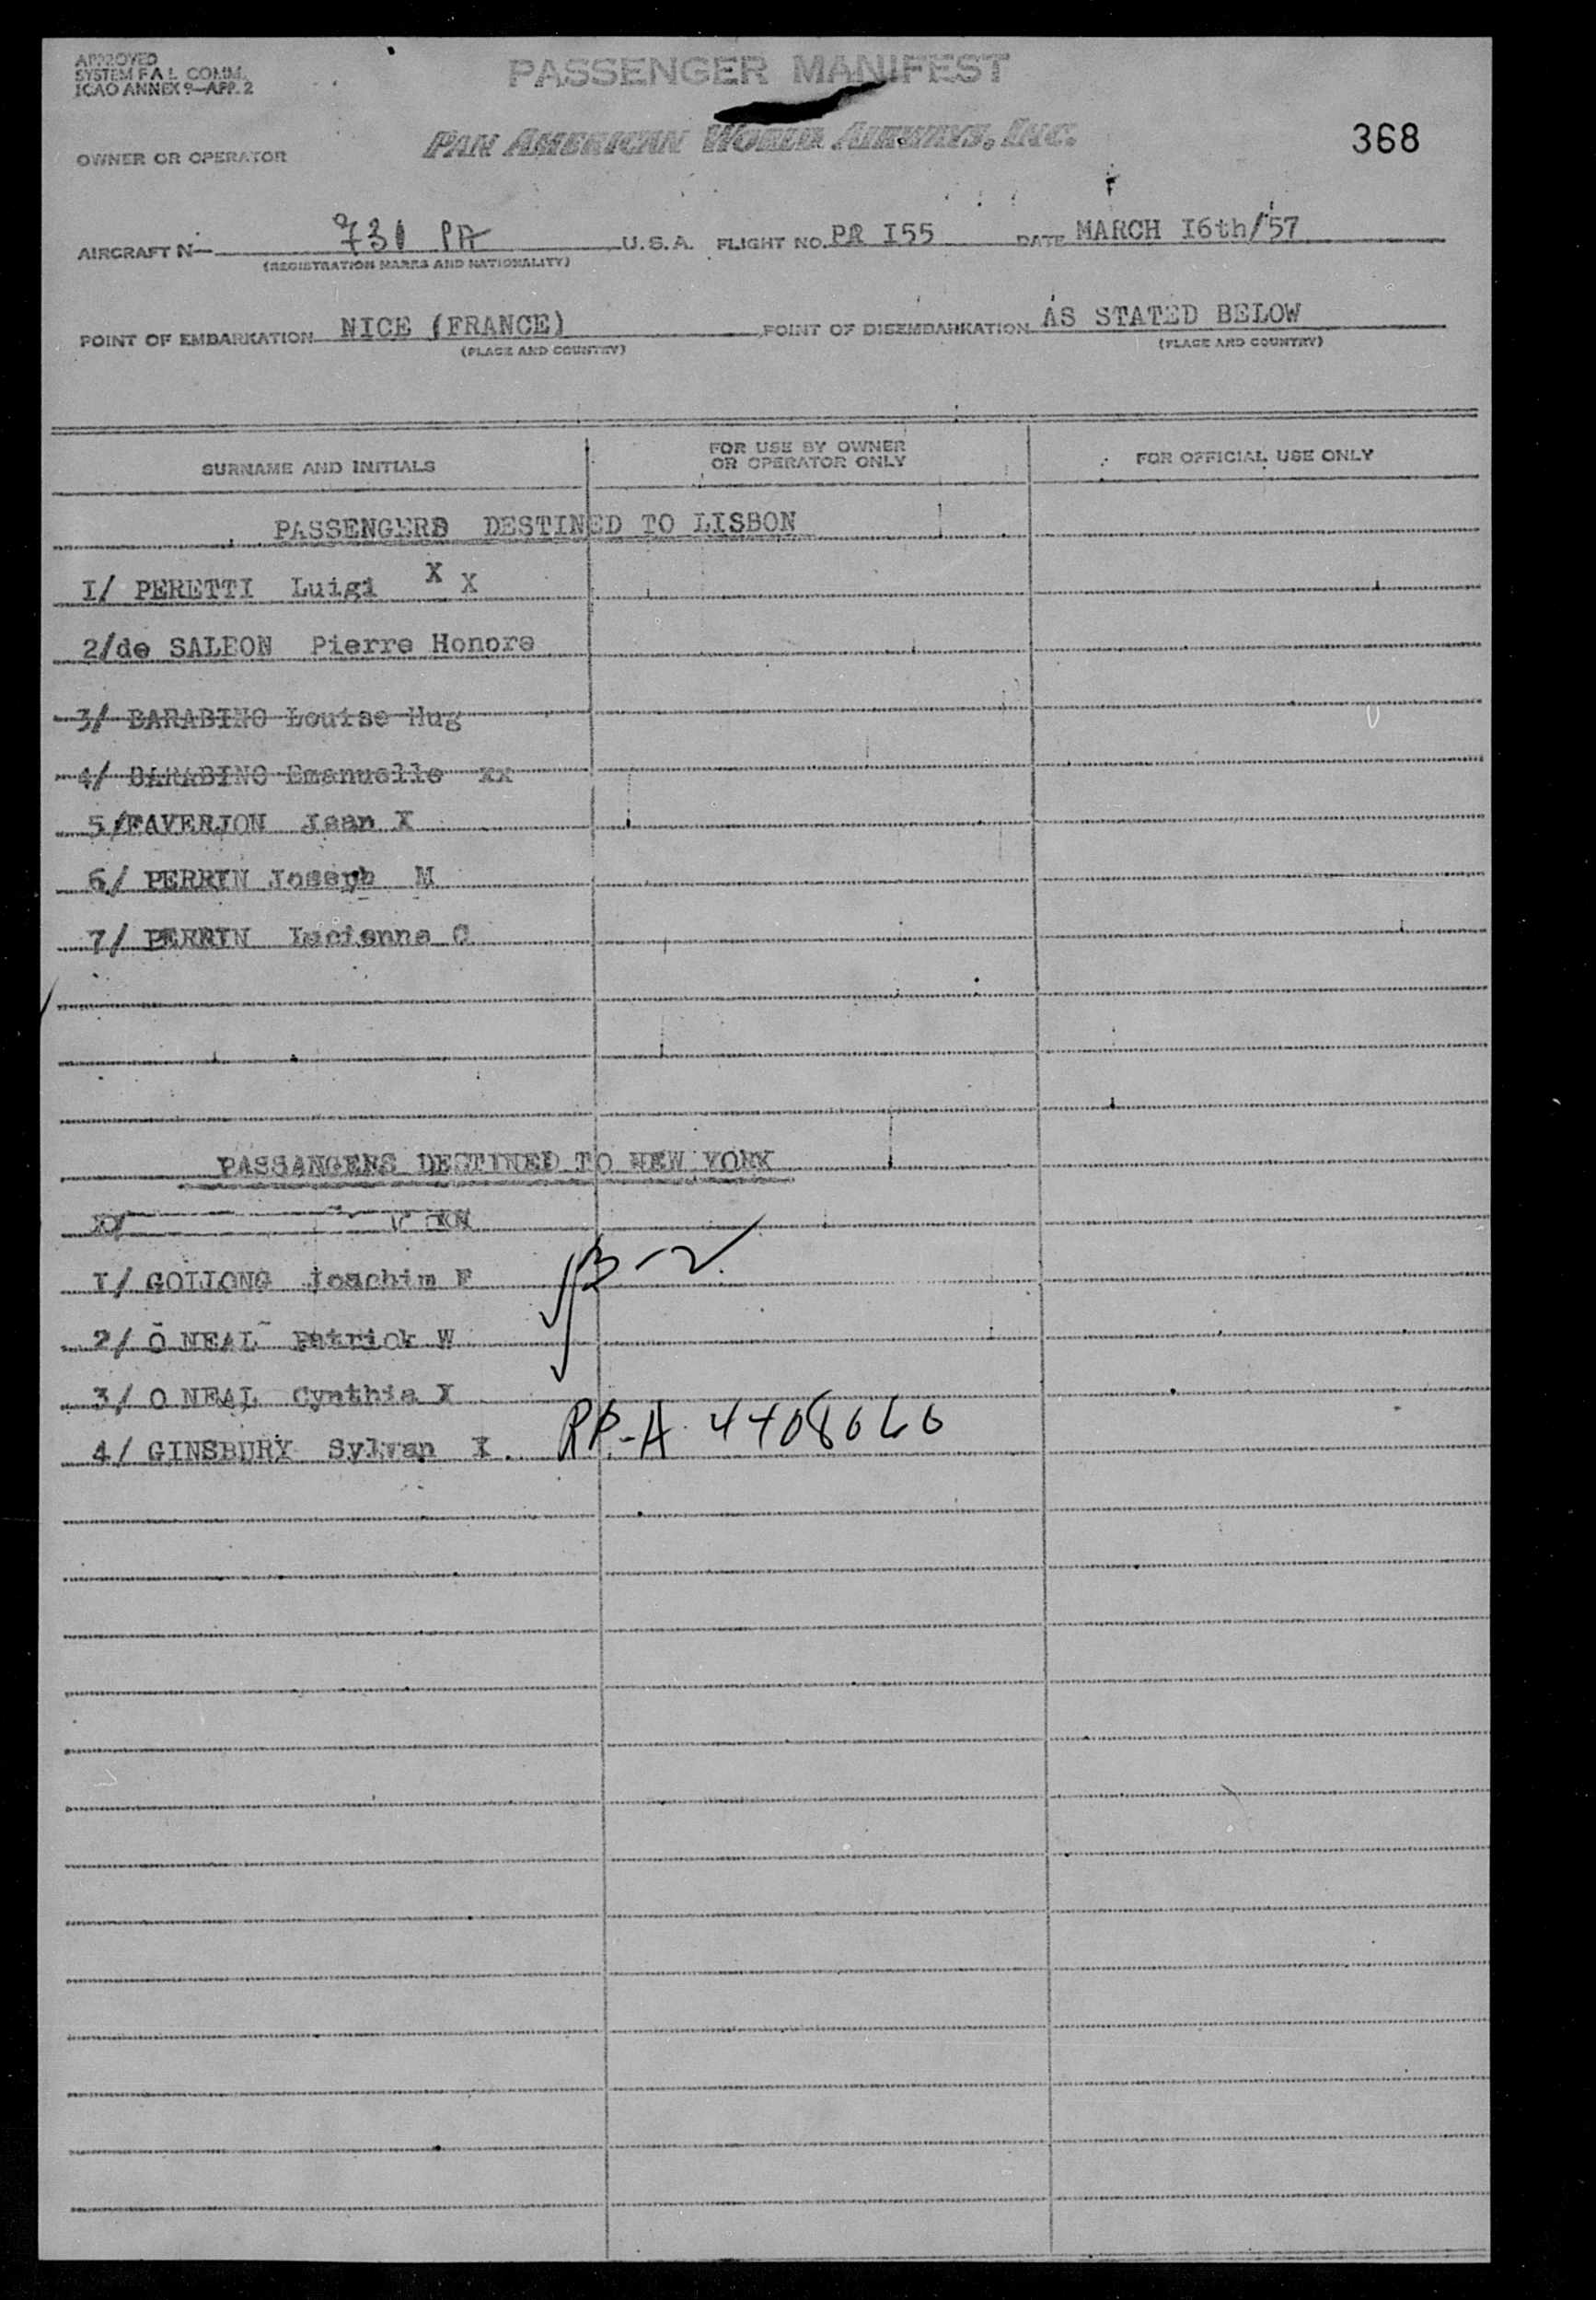 APPROVED
SYSTEM F A L COMM.
ICAO ANNEX 9—APP. 2
PASSENGER MANIFEST
PAN AMERICAN WORLD AIRWAYS, INC.
368
OWNER OR OPERATOR
AIRCRAFT N— 731 PA U.S.A. FLIGHT NO. PA I55 DATE MARCH I6th/57
(REGISTRATION MARKS AND NATIONALITY)
POINT OF EMBARKATION NICE (FRANCE) POINT OF DISEMBARKATION AS STATED BELOW
(PLACE AND COUNTRY) (PLACE AND COUNTRY)
SURNAME AND INITIALS
FOR USE BY OWNER
OR OPERATOR ONLY
FOR OFFICIAL USE ONLY
PASSENGERS DESTINED TO LISBON
I/ PERETTI Luigi X X
2/de SALEON Pierre Honore
3/ BARABINO Louise Hug
4/ BARABINO Emanuelle xx
5/FAVERJON Jean X
6/ PERRIN Joseph M
7/ PERRIN Lucienne C
PASSANGERS DESTINED TO NEW YORK
I/ GOLLONG Joachim F B-2
2/ O NEAL Patrick W
3/ O NEAL Cynthia X
4/ GINSBURY Sylvan I. RP.-A 4408660